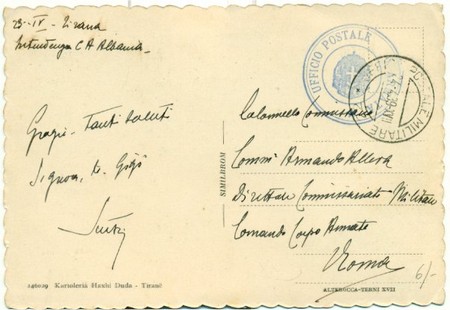 23-IV- Tirana
Intendenza C A Albania
Grazie - Tanti saluti
Signor
UFFICIO POSTALE
POSTALE MILITARE
SIMILBROM
Colonnello Commissario
Comm Armando Allera
Direttore Commissariato Militare
Comando Corpo Armata
Roma
6/-
146029 Kartoleria Haxhi Duda - Tiranë
ALTEROCCA-TERNI XVII